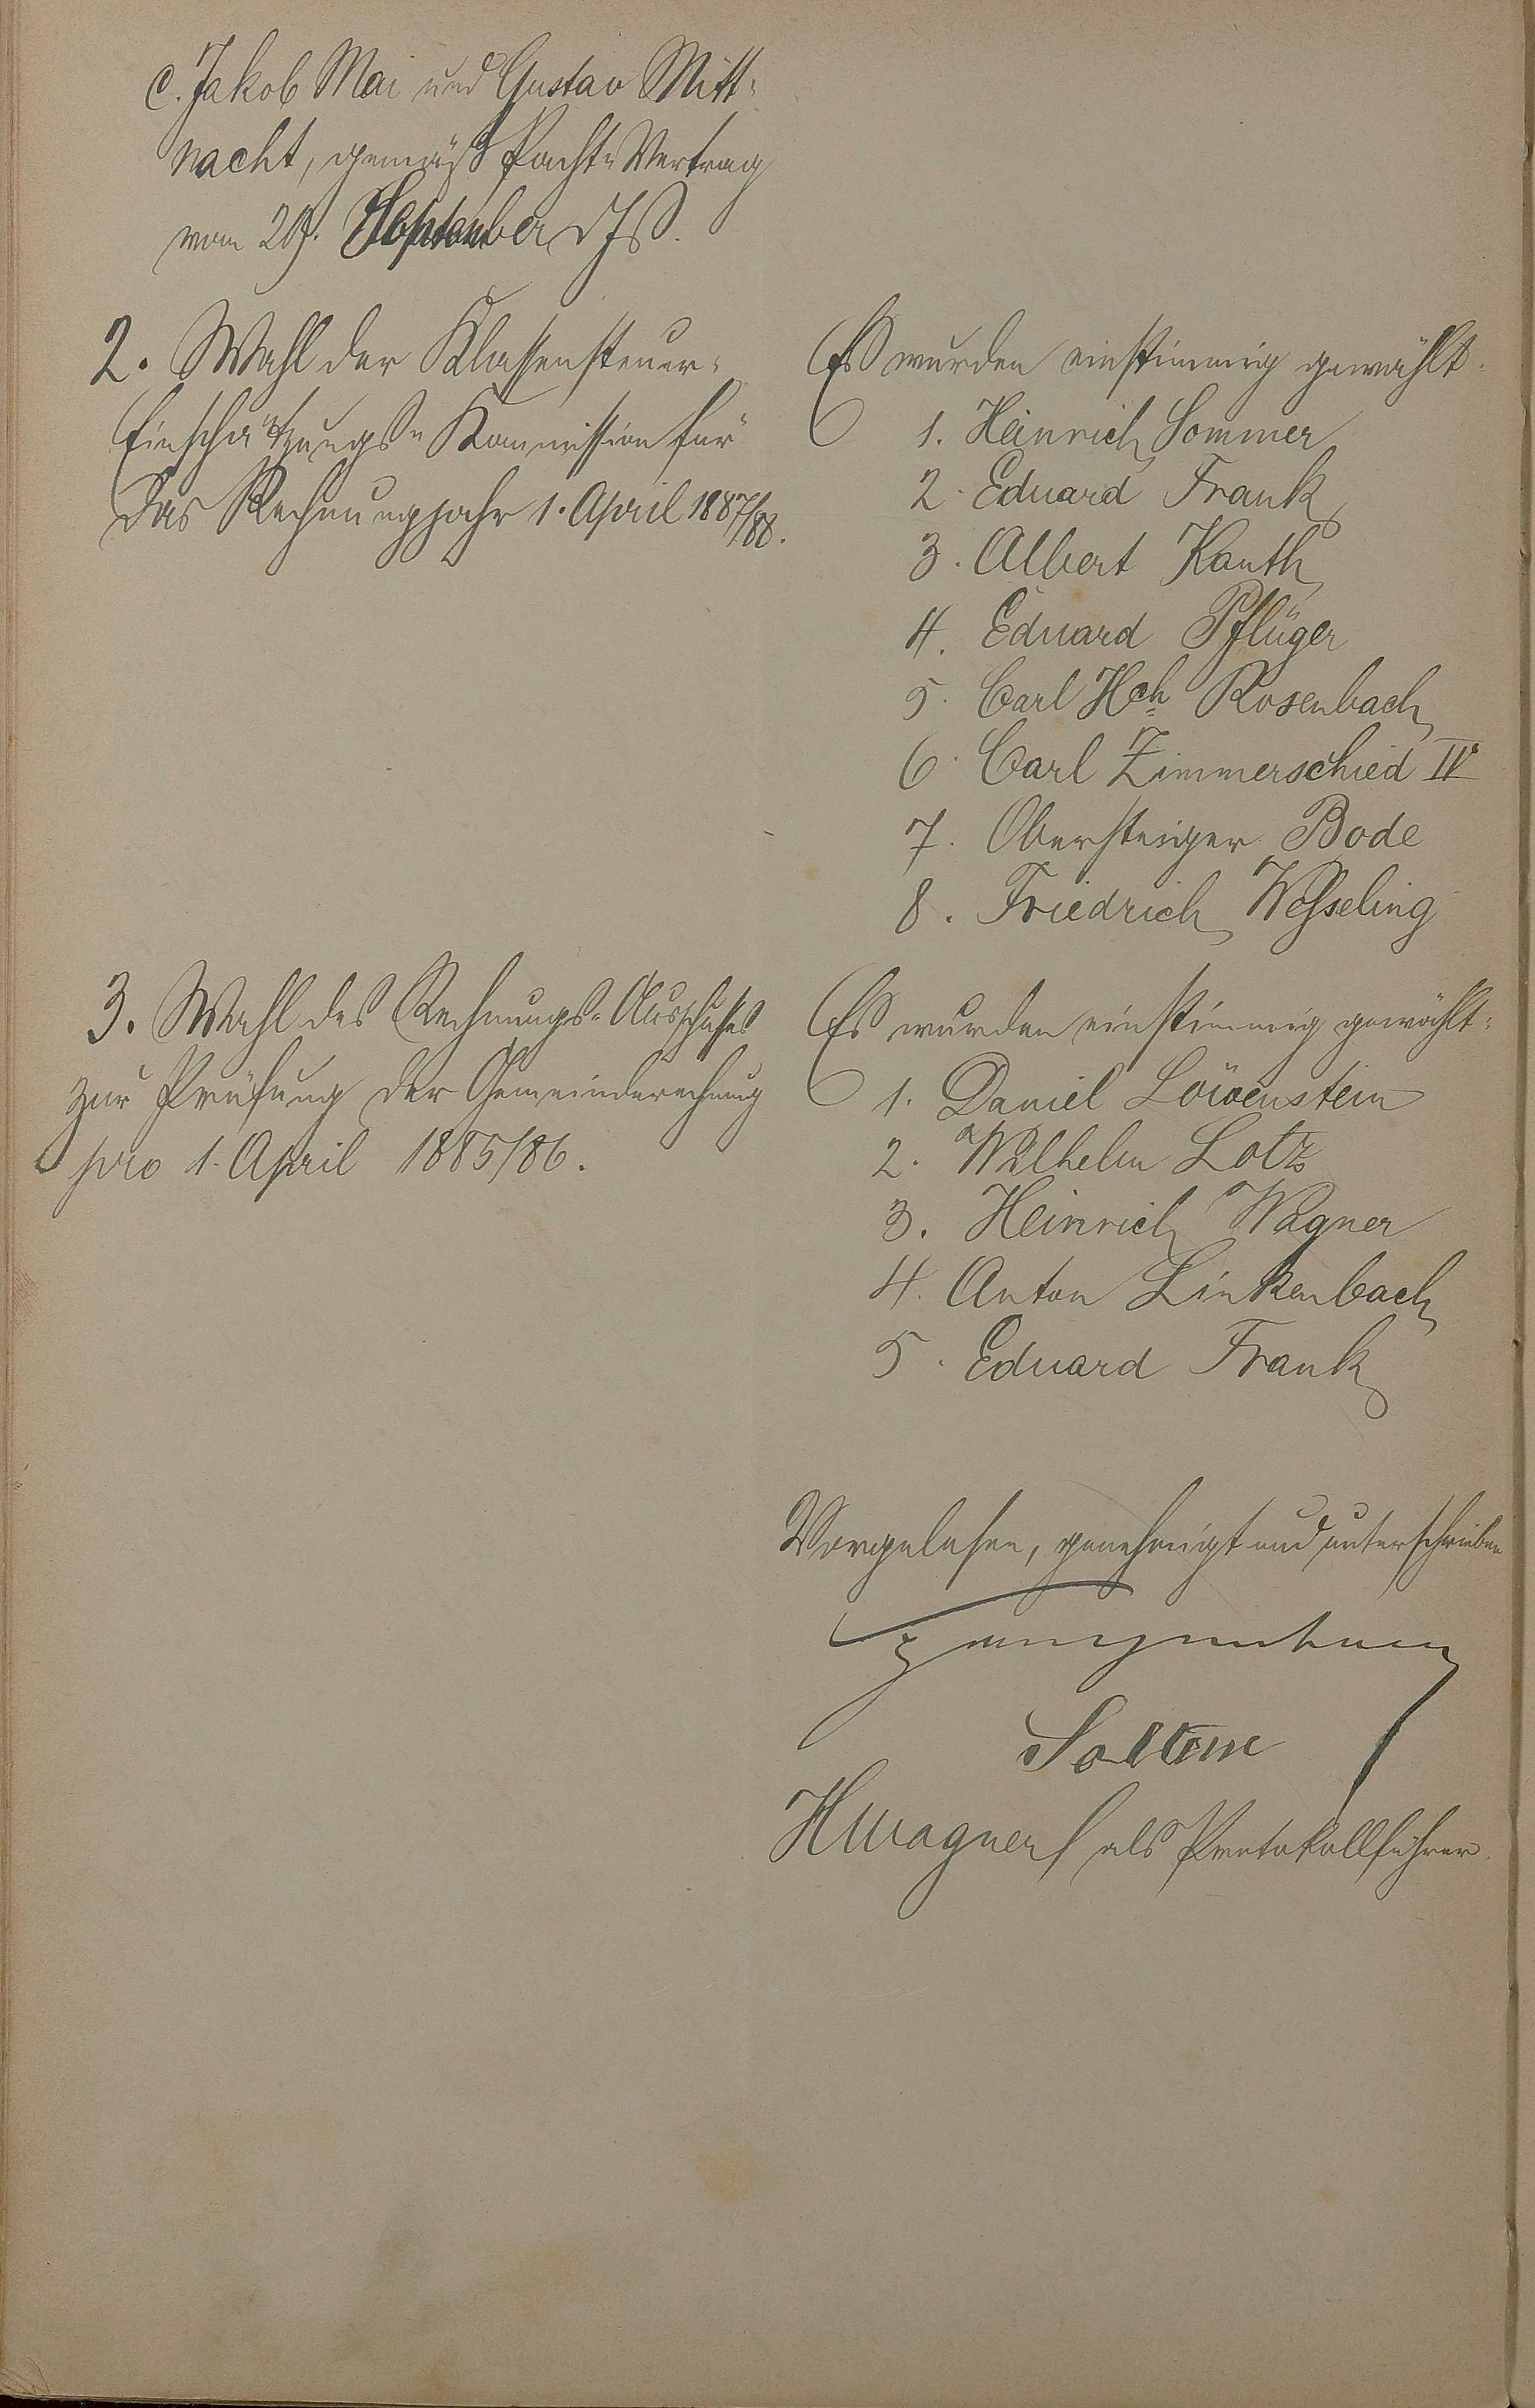 c. Jakob Mai und Gustav Mitt-
nacht, gemäß Pacht-Vertrag
vom 29. September d. Js.
2. Wahl der Klassensteuer-
Einschätzungs-Kommission für
das Rechnungsjahr 1. April 1887/88.
Es wurden einstimmig gewählt:
1. Heinrich Sommer
2. Eduard Frank
3. Albert Kanth
4. Eduard Pflüger
5. Carl Hch Rosenbach
6. Carl Zimmerschied IV
7. Obersteiger Bode
8. Friedrich Wesseling
3. Wahl des Rechnungs-Ausschußes
zur Prüfung der Gemeinderechnung
pro 1. April 1885/86.
Es wurden einstimmig gewählt:
1. Daniel Löwenstein
2. Wilhelm Lotz
3. Heinrich Wagner
4. Anton Linkenbach
5. Eduard Frank
Vorgelesen, genehmigt und unterschrieben
HWagner als Protokollführer.